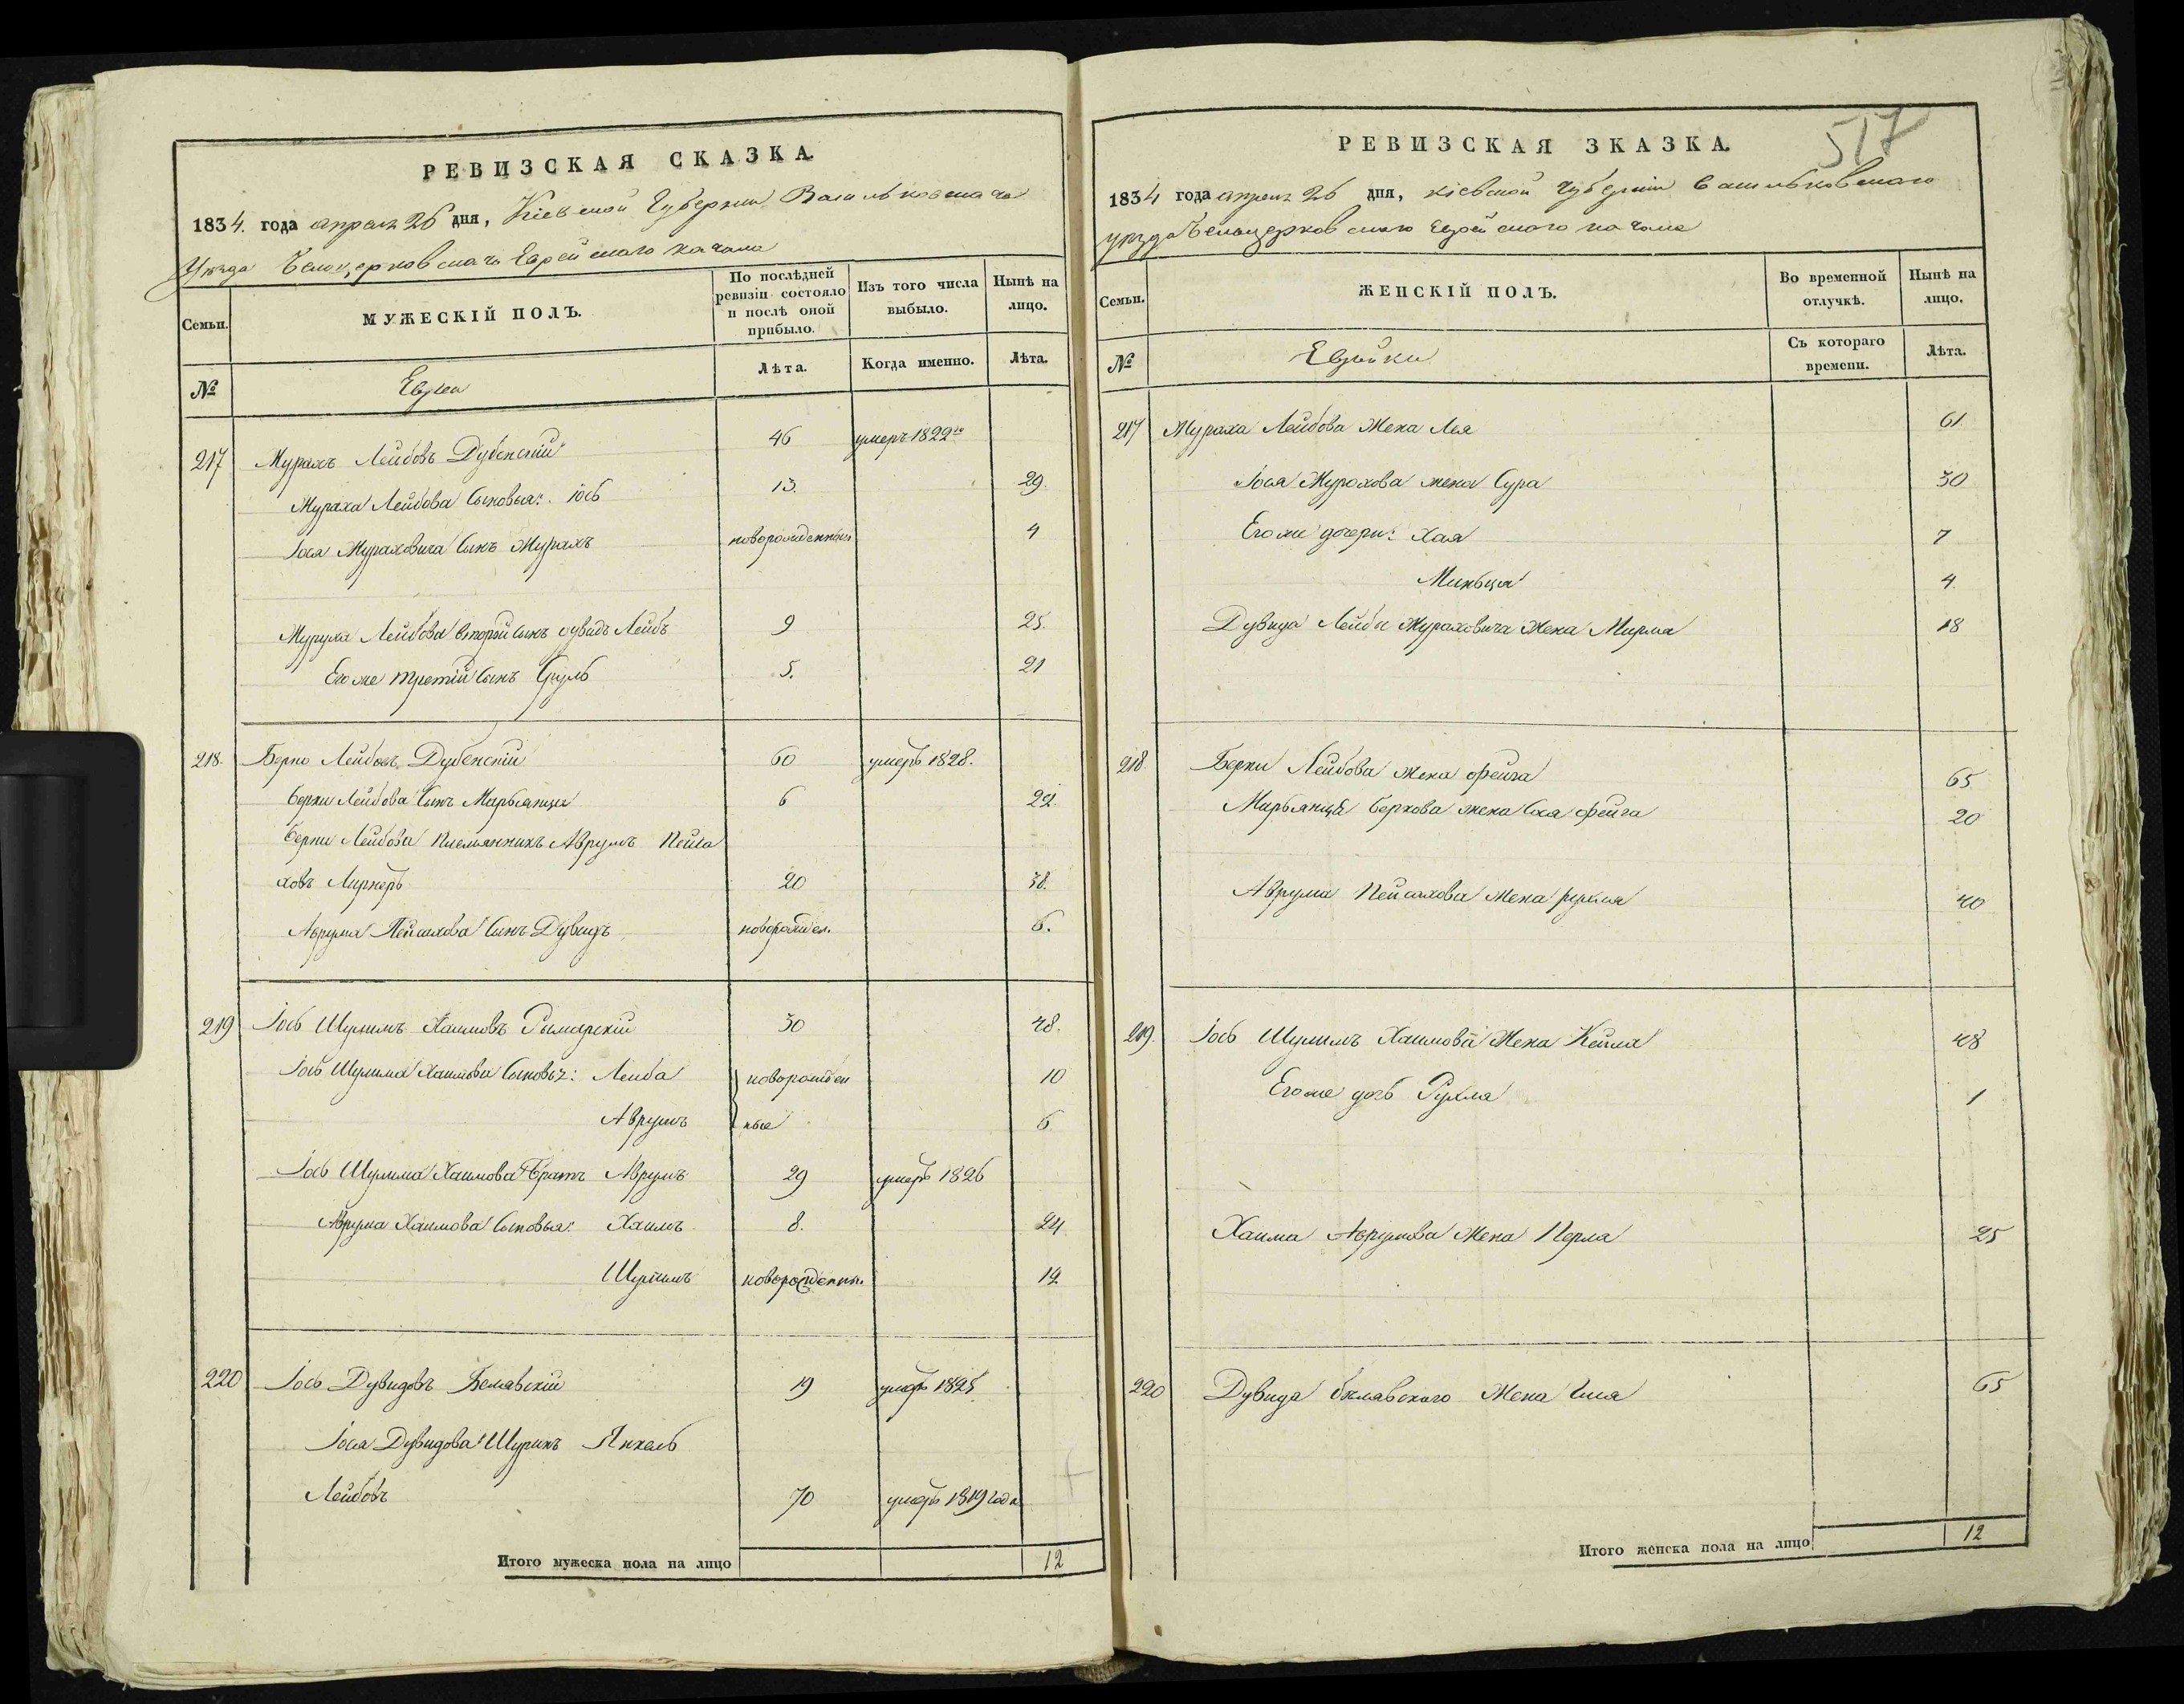 РЕВИЗСКАЯ СКАЗКА.
1834. года апреля 26 дня, Кіевской Губерніи Васильковскаго
Уѣзда Белоцерковскаго Еврейскаго кагала
Семьи.
МУЖЕСКІЙ ПОЛЪ.
По послѣдней ревизіи состояло и послѣ оной прибыло.
Изъ того числа выбыло.
Нынѣ на лицо.
№
Евреи
Лѣта.
Когда именно.
Лѣта.
217 Мурахъ Лейбовъ Дубенскій 46 умеръ 1822го
Мураха Лейбова Сыновья: Іось 13. 29.
Іося Мураховича Сынъ Мурахъ новорожденный 4
Мураха Лейбова второй сынъ Дувидъ Лейбъ 9 25.
Его же третій Сынъ Сруль 5. 21
218. Берко Лейбовъ Дубенскій 60 умеръ 1828.
Берки Лейбова Сынъ Марьянца 6 22.
Берки Лейбова племянникъ Аврумъ Пейса
ховъ Лирнеръ 20 38.
Аврума Пейсахова Сынъ Дувидъ новорожден. 6.
219 Іось Шулимъ Хаимовъ Рымарскій 30 48.
Іось Шулима Хаимова Сыновья: Лейба новорожден 10
Аврумъ ные 6
Іось Шулима Хаимова Братъ Аврумъ 29 умеръ 1826
Аврума Хаимова Сыновья: Хаимъ 8. 24.
Шулимъ новорожденны. 12
220 Іось Дувидовъ Белявскій 19 умеръ 1825
Іося Дувидова Шуринъ Янкель
Лейбовъ 70 умеръ 1819 года
Итого мужеска пола на лицо 12
517
РЕВИЗСКАЯ ЗКАЗКА.
1834 года апреля 26 дня, кіевской губерніи Васильковскаго
уѣзда Белоцерковскаго Еврейскаго кагала
Семьи.
ЖЕНСКІЙ ПОЛЪ.
Во временной отлучкѣ.
Нынѣ на лицо.
№
Еврейки
Съ котораго времени.
Лѣта.
217 Мураха Лейбова Жена Лея 61
Іося Мурахова жена Сура 30
Его же дочери: Хая 7
Миньця 4.
Дувида Лейбы Мураховича Жена Мирма 18
218. Берки Лейбова жена Фейга 65
Марьянци Беркова жена Хая Фейга 20
Аврума Пейсахова Жена рухля 40
219. Іось Шулимъ Хаимова Жена Кейла 48
Его же дочь Рухля 1
Хаима Аврумова Жена Перля 25
220 Дувида бѣлявскаго Жена 65
Итого женска пола на лицо 12